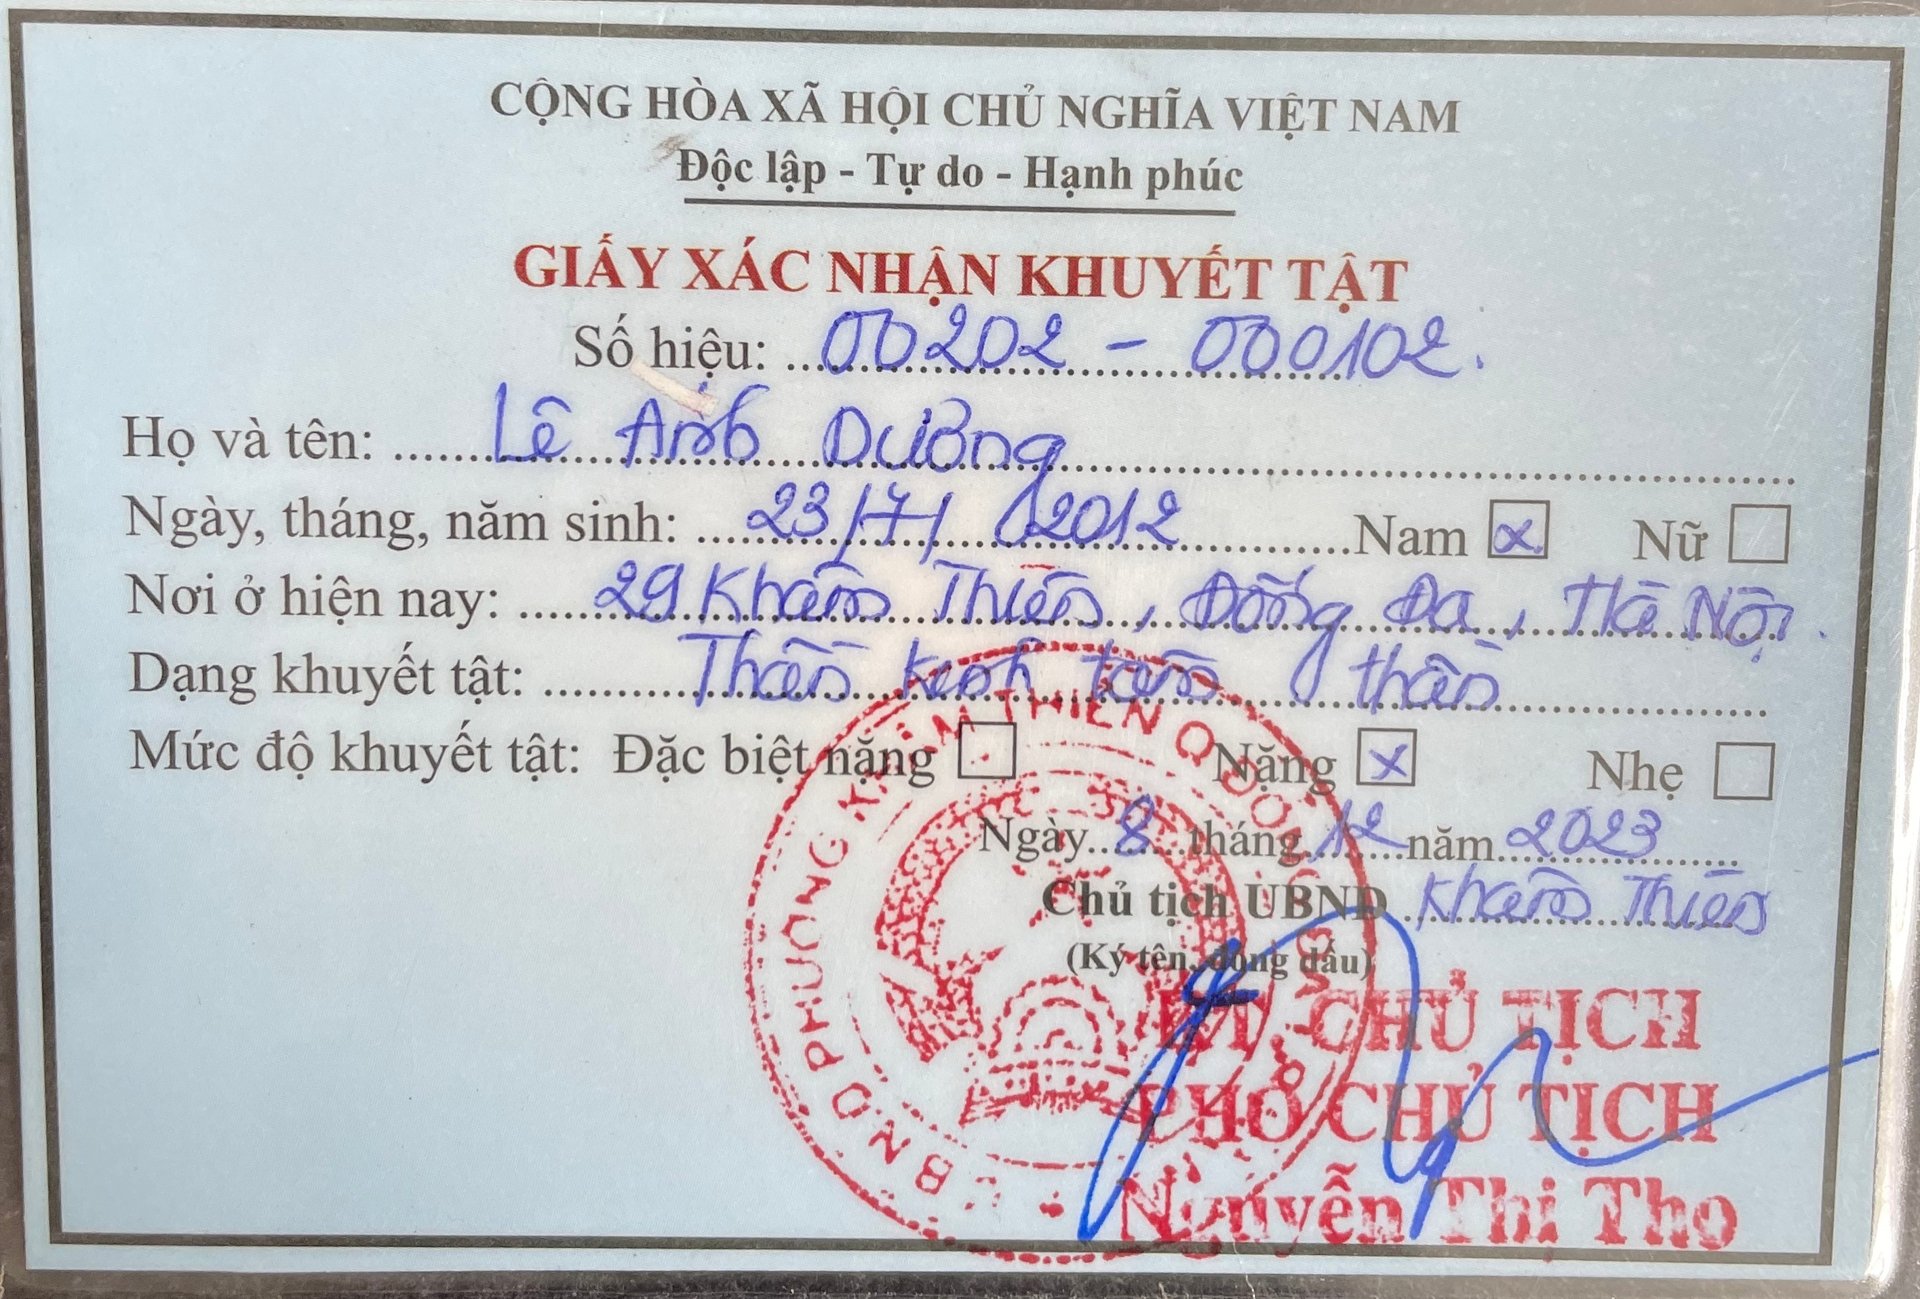 CỘNG HÒA XÃ HỘI CHỦ NGHĨA VIỆT NAM
Độc lập - Tự do - Hạnh phúc
GIẤY XÁC NHẬN KHUYẾT TẬT
Số hiệu: 00202 - 000102.
Họ và tên: Lê Ánh Dương
Ngày, tháng, năm sinh: 23/7/2012 Nam x Nữ
Nơi ở hiện nay: 29 Khâm Thiên, Đống Đa, Hà Nội.
Dạng khuyết tật: Thần kinh tâm thần
Mức độ khuyết tật: Đặc biệt nặng Nặng x Nhẹ
Ngày 8 tháng 12 năm 2023
Chủ tịch UBND Khâm Thiên
(Ký tên, đóng dấu)
KT CHỦ TỊCH
PHÓ CHỦ TỊCH
Nguyễn Thị Thọ
U.B.N.D PHƯỜNG KHÂM THIÊN Q. ĐỐNG ĐA